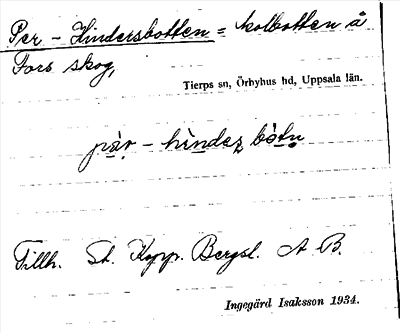 Per-Hindersbotten = kolbotten å
Fors skog,
Tierps sn, Örbyhus hd, Uppsala län.
pär - hìndaʐ bòtn
Tillh. St. Kopp. Bergsl. A B.
Ingegärd Isaksson 1934.